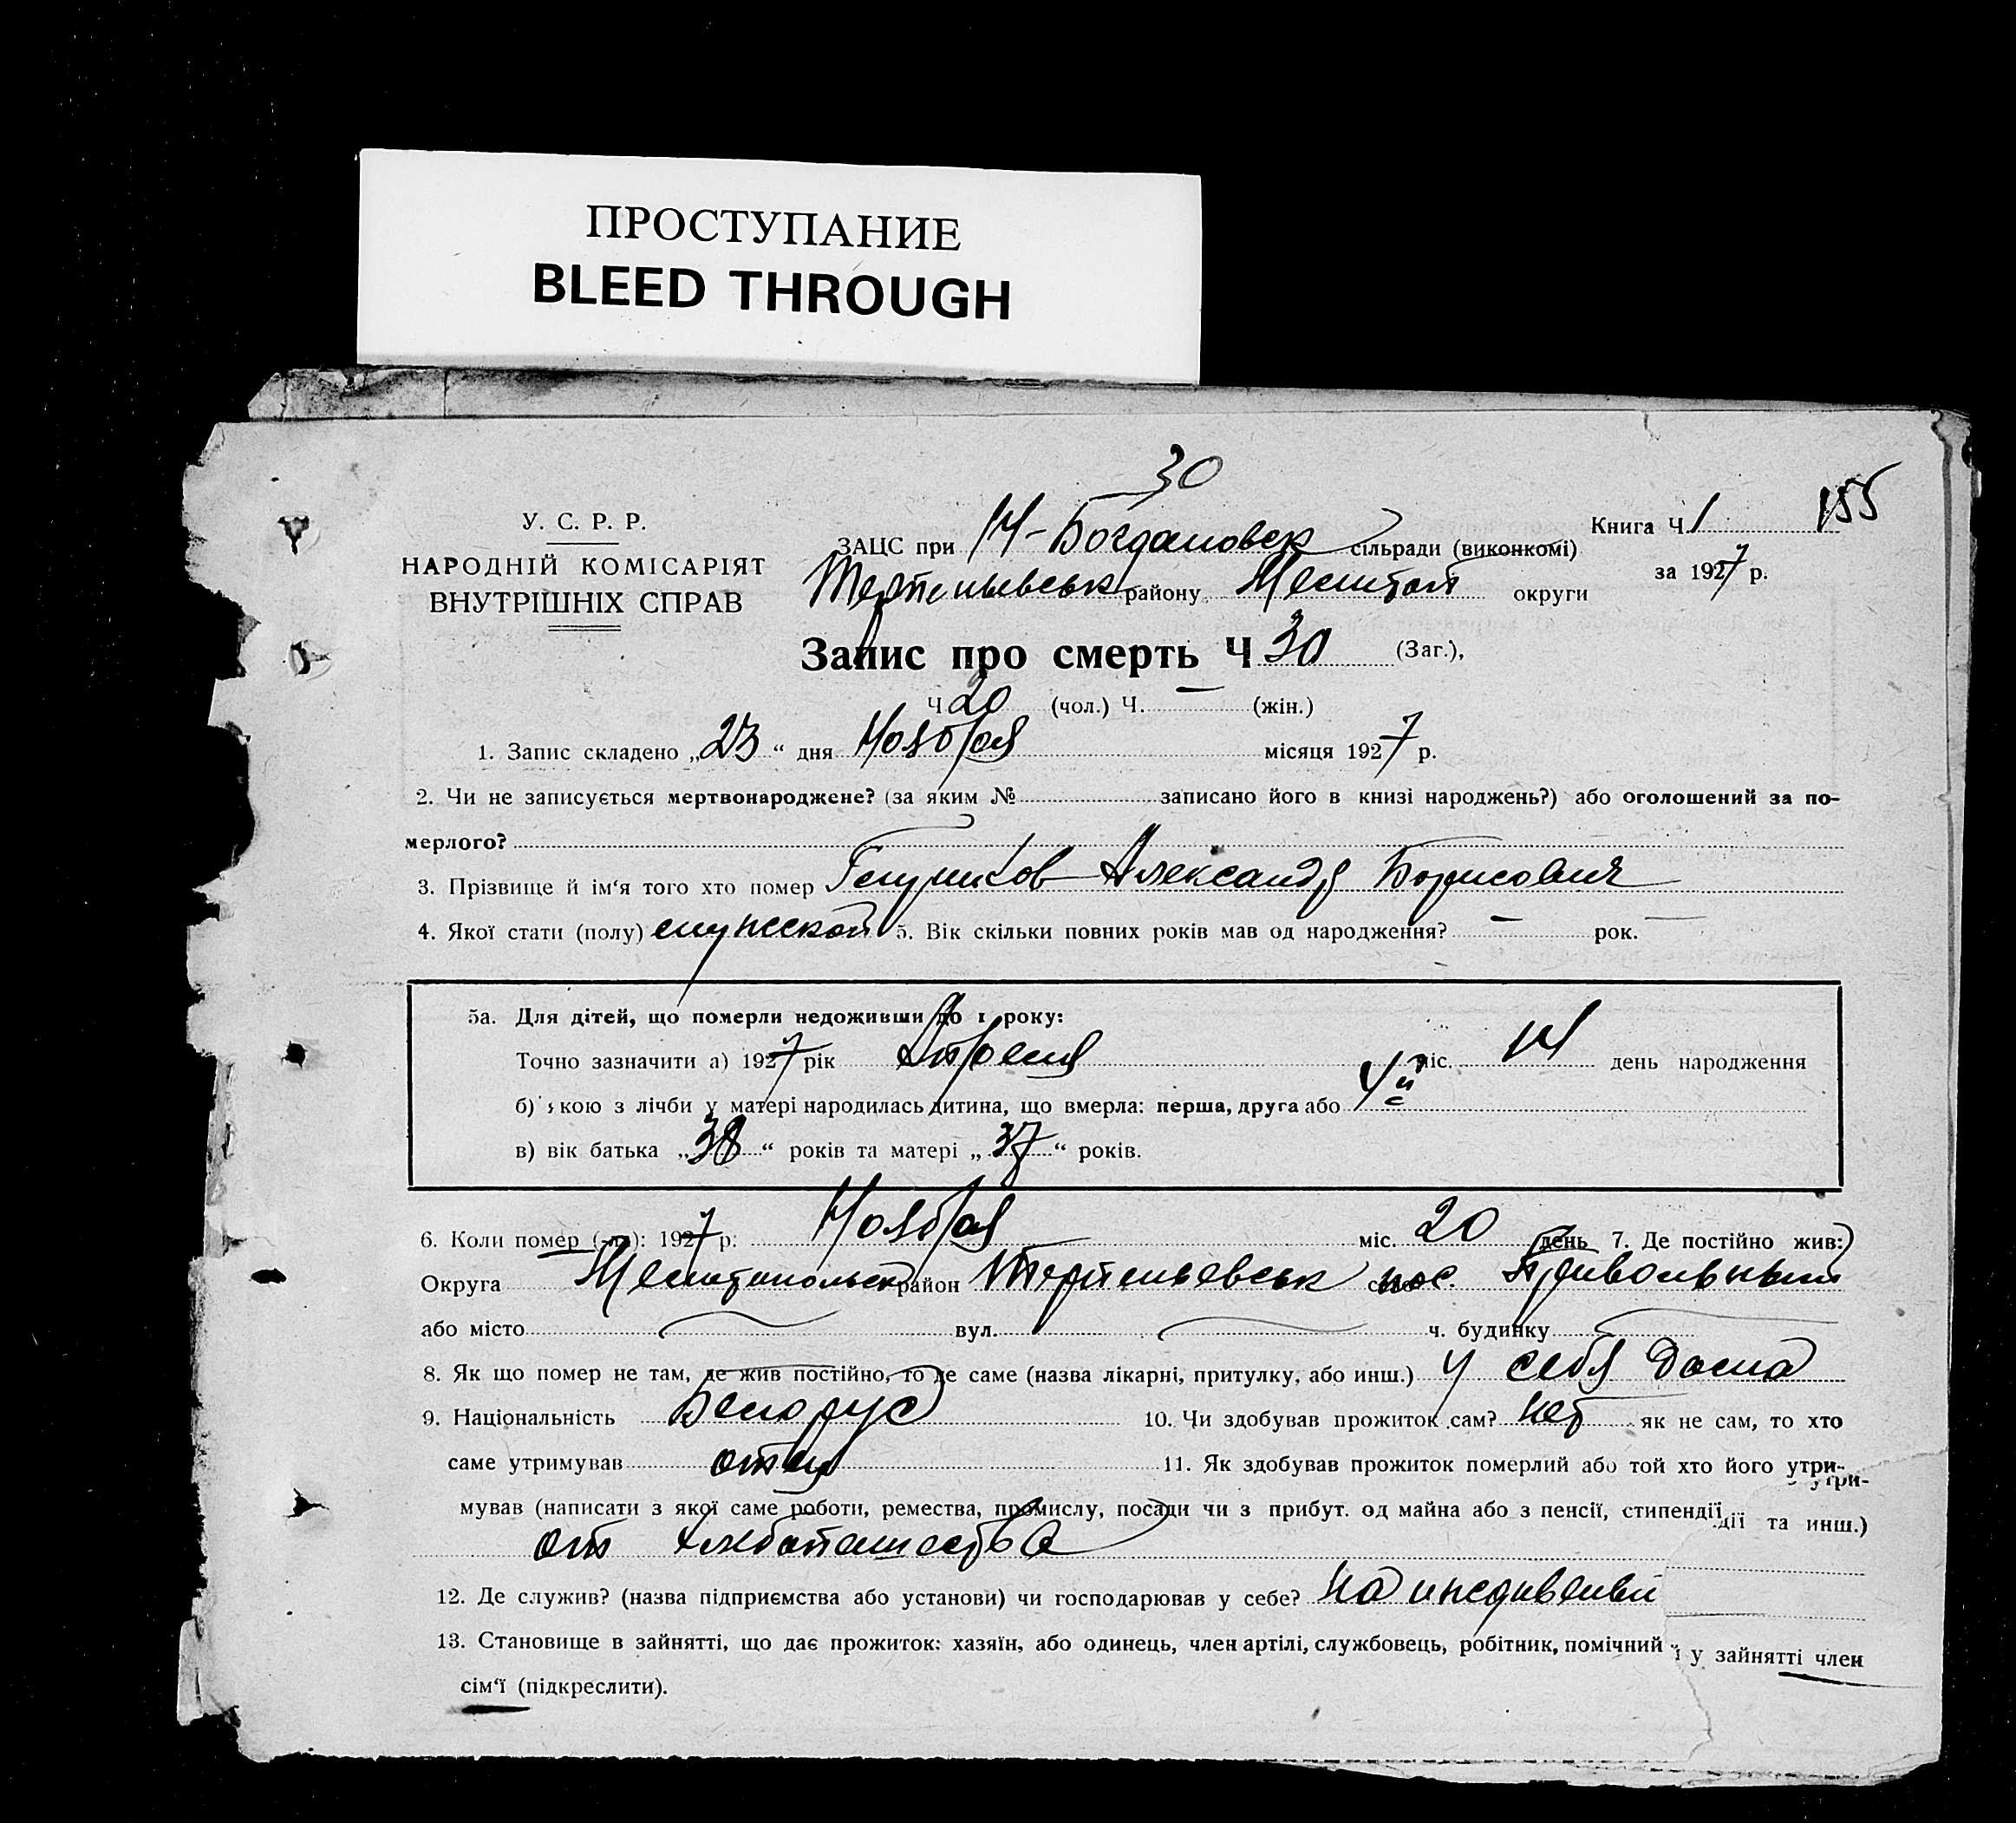 ПРОСТУПАНИЕ
BLEED THROUGH
30
У. С. Р. Р.
НАРОДНІЙ КОМІСАРІЯТ
ВНУТРІШНІХ СПРАВ
Книга Ч 1 155
за 1927 р.
ЗАЦС при Н-Богдановск сільради (виконкомі)
району округи
Запис про смерть Ч 30 (Заг.),
Ч 20 (чол.) Ч. — (жін.)
1. Запис складено „23“ дня Ноября місяця 1927 р.
2. Чи не записується мертвонароджене? (за яким № записано його в книзі народжень?) або оголошений за по-
мерлого?
3. Прізвище й ім‘я того хто помер Александр Борисович
4. Якої стати (полу) мужской 5. Вік скільки повних років мав од народження? — рок.
5а. Для дітей, що померли недоживши до 1 року:
Точно зазначити а) 1927 рік Апреля міс. 14 день народження
б) якою з лічби у матері народилась дитина, що вмерла: перша, друга або 4й
в) вік батька „38“ років та матері „37“ років.
6. Коли помер (-ла): 1927 р. Ноября міс. 20 день 7. Де постійно жив:
Округа Мелитопольск район пос. Привольный
або місто вул. ч. будинку
8. Як що помер не там, де жив постійно, то де саме (назва лікарні, притулку, або инш.) У себя дома
9. Національність Белорус 10. Чи здобував прожиток сам? нет як не сам, то хто
саме утримував отец 11. Як здобував прожиток померлий або той хто його утри-
мував (написати з якої саме роботи, ремества, промислу, посади чи з прибут. од майна або з пенсії, стипендії та инш.)
от хлебопашества
12. Де служив? (назва підприємства або установи) чи господарював у себе? На
13. Становище в зайнятті, що дає прожиток: хазяїн, або одинець, член артілі, службовець, робітник, помічний у зайнятті член
сім‘ї (підкреслити).